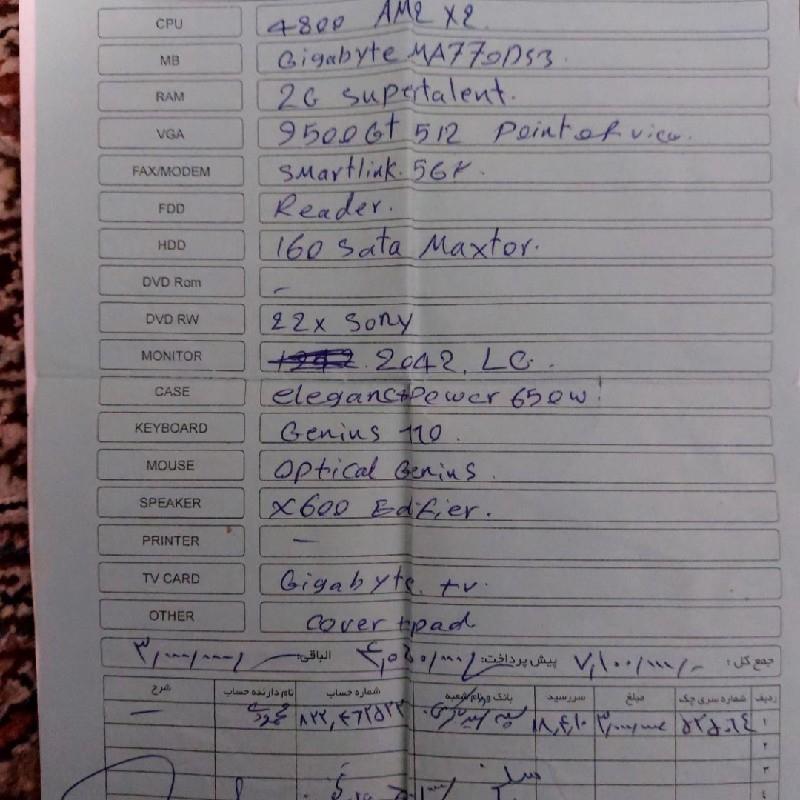 CPU 4800 AM2 X2
MB Gigabyte MA770DS3.
RAM 2G supertalent.
VGA 9500Gt 512 Point of view.
FAX/MODEM Smartlink 56K.
FDD Reader.
HDD 160 Sata Maxtor.
DVD Rom -
DVD RW 22x Sony
MONITOR 2042. LG.
CASE elegance+Power 650w
KEYBOARD Genius 110.
MOUSE Optical Genius.
SPEAKER X600 Edifier.
PRINTER —
TV CARD Gigabyte. tv.
OTHER cover+pad
جمع کل: ۷,۱۰۰/۰۰۰/- پیش پرداخت: الباقی: ۳/۰۰۰/۰۰۰/-
ردیف شماره سری چک مبلغ سررسید بانک و نام شعبه شماره حساب نام دارنده حساب شرح
۱
۲
۳
۴